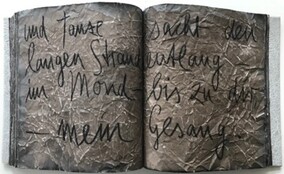 und tanze sacht den
langen Strand entlang
im Mond – bis zu dir
– mein Gesang –